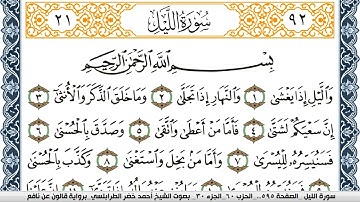 ٩٢ سُورَةُ اللَّيْلِ ٢١
بِسْمِ اللَّهِ الرَّحْمَٰنِ الرَّحِيمِ
وَالَّيْلِ إِذَا يَغْشَىٰ ١ وَالنَّهَارِ إِذَا تَجَلَّىٰ ٢ وَمَا خَلَقَ الذَّكَرَ وَالْأُنثَىٰ ٣
إِنَّ سَعْيَكُمْ لَشَتَّىٰ ٤ فَأَمَّا مَنْ أَعْطَىٰ وَاتَّقَىٰ ٥ وَصَدَّقَ بِالْحُسْنَىٰ ٦
فَسَنُيَسِّرُهُ لِلْيُسْرَىٰ ٧ وَأَمَّا مَنْ بَخِلَ وَاسْتَغْنَىٰ ٨ وَكَذَّبَ بِالْحُسْنَىٰ
سورة الليل . الصفحة ٥٩٥ . الحزب ٦٠ الجزء ٣٠ . بصوت الشيخ أحمد خضر الطرابلسي . برواية قالون عن نافع